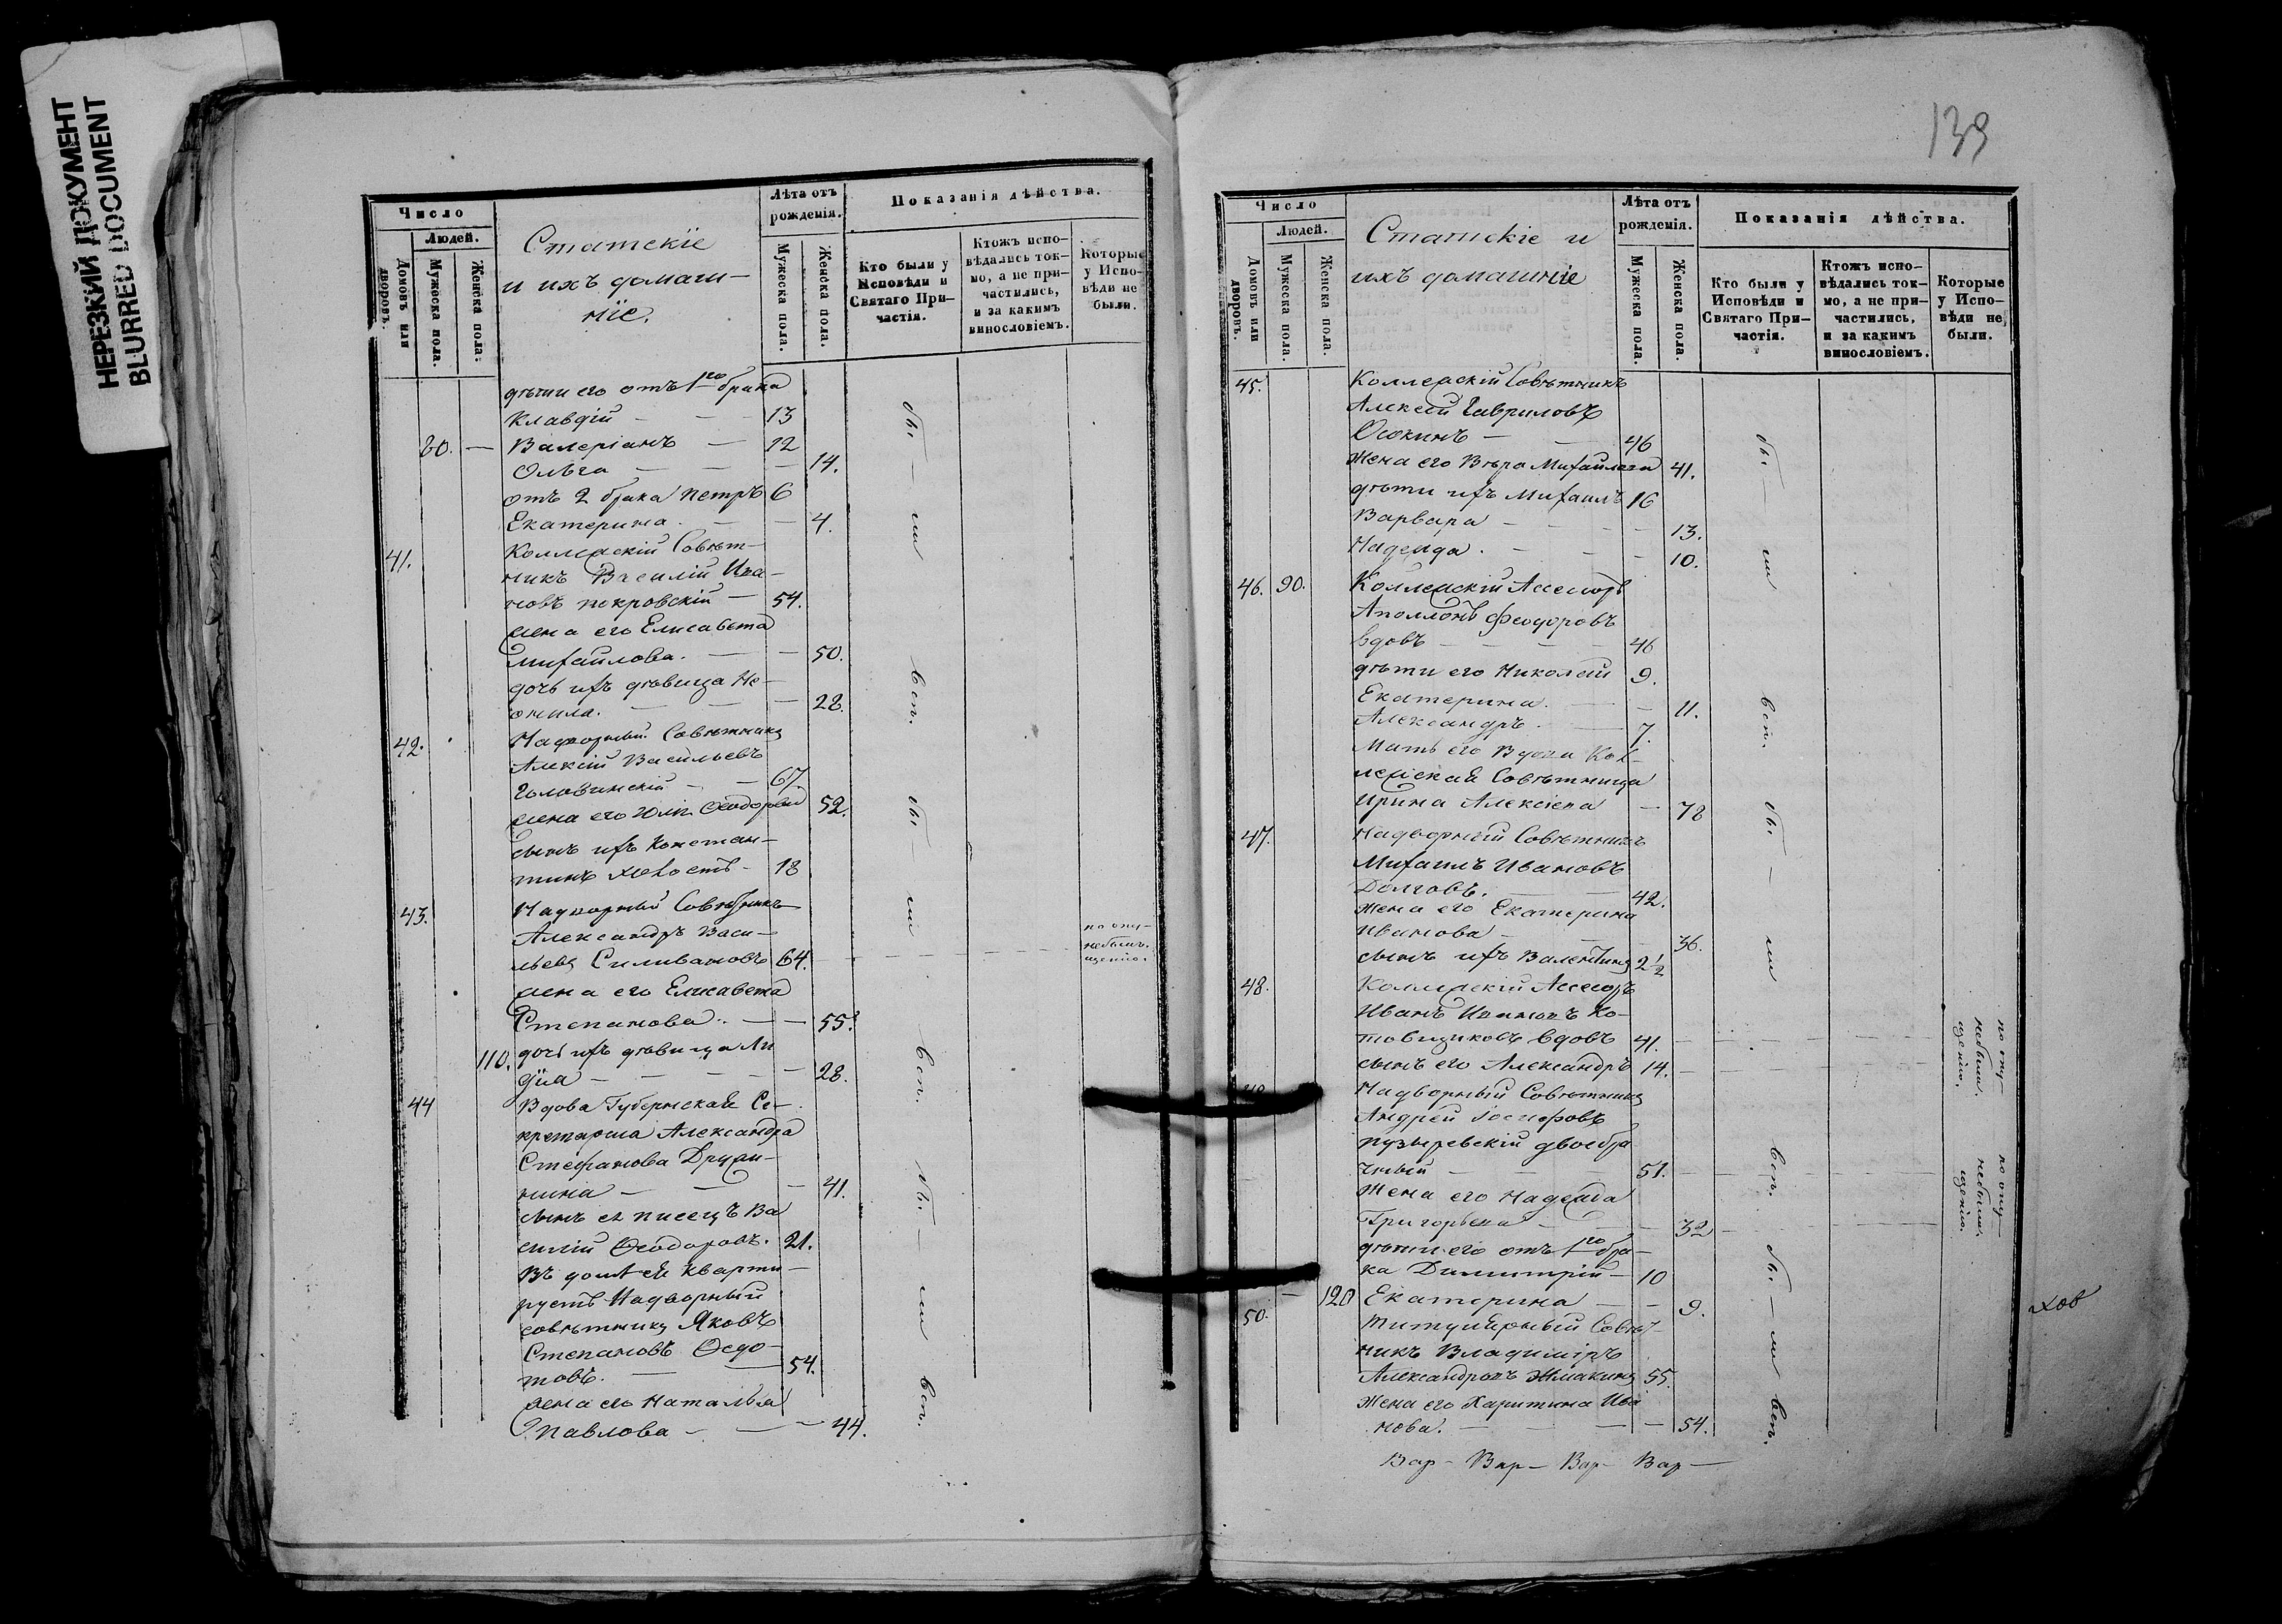 НЕРЕЗКИЙ ДОКУМЕНТ
BLURRED DOCUMENT
Число
Людей.
Домовъ или дворовъ.
Мужеска пола.
Женска пола.
Статскіе
и ихъ домаш-
ніе.
Лѣта отъ рожденія.
Мужеска пола.
Женска пола.
Показанія дѣйства.
Кто были у Исповѣди и Святаго При-
частія.
Ктожъ испо-
вѣдались ток-
мо, а не при-
частились,
и за какимъ
винословіемъ.
Которые
у Испо-
вѣди не
были.
дѣти его отъ 1го брака
Клавдій — 13
80. — Валеріанъ — 12
Ольга — 14.
отъ 2 брака Петръ 6
Екатерина. — 4.
41. Коллежскій Совѣт-
никъ Василій Ива-
новъ Покровскій — 54.
жена его Елисавета
Михайлова. — 50.
дочь ихъ дѣвица Не-
онила. — 28.
42. Надворный Совѣтникъ
Алексій Васильевъ
Головинскій — 67.
жена его Юлія Ѳеодорова 52.
сынъ ихъ Констан-
тинъ холостъ — 18
43. Надворный Совѣтникъ
Александръ Васи-
льевъ Силивановъ 64.
по опу-
щенію.
небылъ.
жена его Елисавета
Степанова. — 55.
110. дочь ихъ дѣвица Ли
дія — 28.
44 Вдова Губернская Се-
кретарша Александра
Стефанова Дружи-
нина — 41.
сынъ ея писецъ Ва
силій Ѳеодоровъ. 21.
Въ домѣ ея кварти-
руетъ Надворный
совѣтникъ Яковъ
Степановъ Ѳедо-
товъ. — 54.
жена его Наталья
Павлова — 44.
бы — ли
вси.
бы — ли
вси.
бы — ли
вси.
139
Число
Людей.
Домовъ или дворовъ.
Мужеска пола.
Женска пола.
Статскіе и
ихъ домашніе
Лѣта отъ рожденія.
Мужеска пола.
Женска пола.
Показанія дѣйства.
Кто были у
Исповѣди и
Святаго При-
частія.
Ктожъ испо-
вѣдались ток-
мо, а не при-
частились,
и за какимъ
винословіемъ.
Которые
у Испо-
вѣди не
были.
45. Коллежскій Совѣтникъ
Алексій Гавриловъ
Осокинъ — 46
жена его Вѣра Михайлова 41.
дѣти ихъ Михаилъ 16
Варвара — 13.
Надежда. — 10.
46. 90. Коллежскій Ассесоръ
Аполлонъ Феодоровъ
вдовъ — 46
дѣти его Николай 9.
Екатерина. — 11.
Александръ. — 7.
Мать его вдова Кол-
лежская Совѣтница
Ирина Алексіева — 78
47. Надворный Совѣтникъ
Михаилъ Ивановъ
Долговъ. — 42.
жена его Екатерина
Иванова — 36.
сынъ ихъ Валентинъ 2 1/2
48. Коллежскій Ассесоръ
Иванъ Ивановъ Ко-
товщиковъ вдовъ 41.
сынъ его Александръ 14.
49. Надворный Совѣтникъ
Андрей Іосифовъ
Пузыревскій двоебра
чный — 51.
жена его Надежда
Григорьева — 32
дѣти его отъ 1го бра-
ка Димитрій — 10
120 Екатерина — 9.
50. Титулярный Совѣт-
никъ Владиміръ
Александровъ Жмакинъ 55.
жена его Харитина Ива
нова. — 54.
бы — ли
вси.
бы — ли
вси.
бы — ли
вси.
по опу-
щенію.
небыли.
по опу-
щенію.
небыли.
Вар — Вар — Вар — Вар —
хов